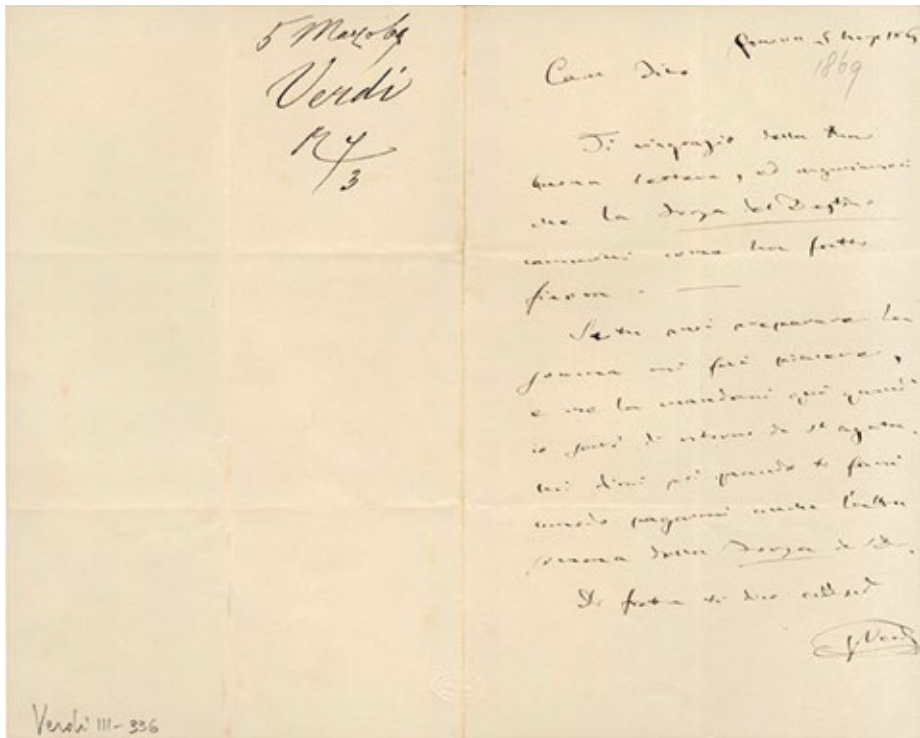 5 Marzo 69
Verdi
R 7/3
Genova 5 Marzo 1869
1869
Caro Tito
Ti ringrazio della tua
buona lettera, ed auguriamoci
che la Forza del Destino
cammini come ha fatto
finora. —
Se tu puoi preparare la
somma mi fai piacere,
e me la manderai qui quando
io sarò di ritorno da St Agata.
Mi dirai poi quando ti farà
comodo pagarmi anche l'altra
somma della Forza del D.
Di fretta ti dico addio
G Verdi
Verdi III-336